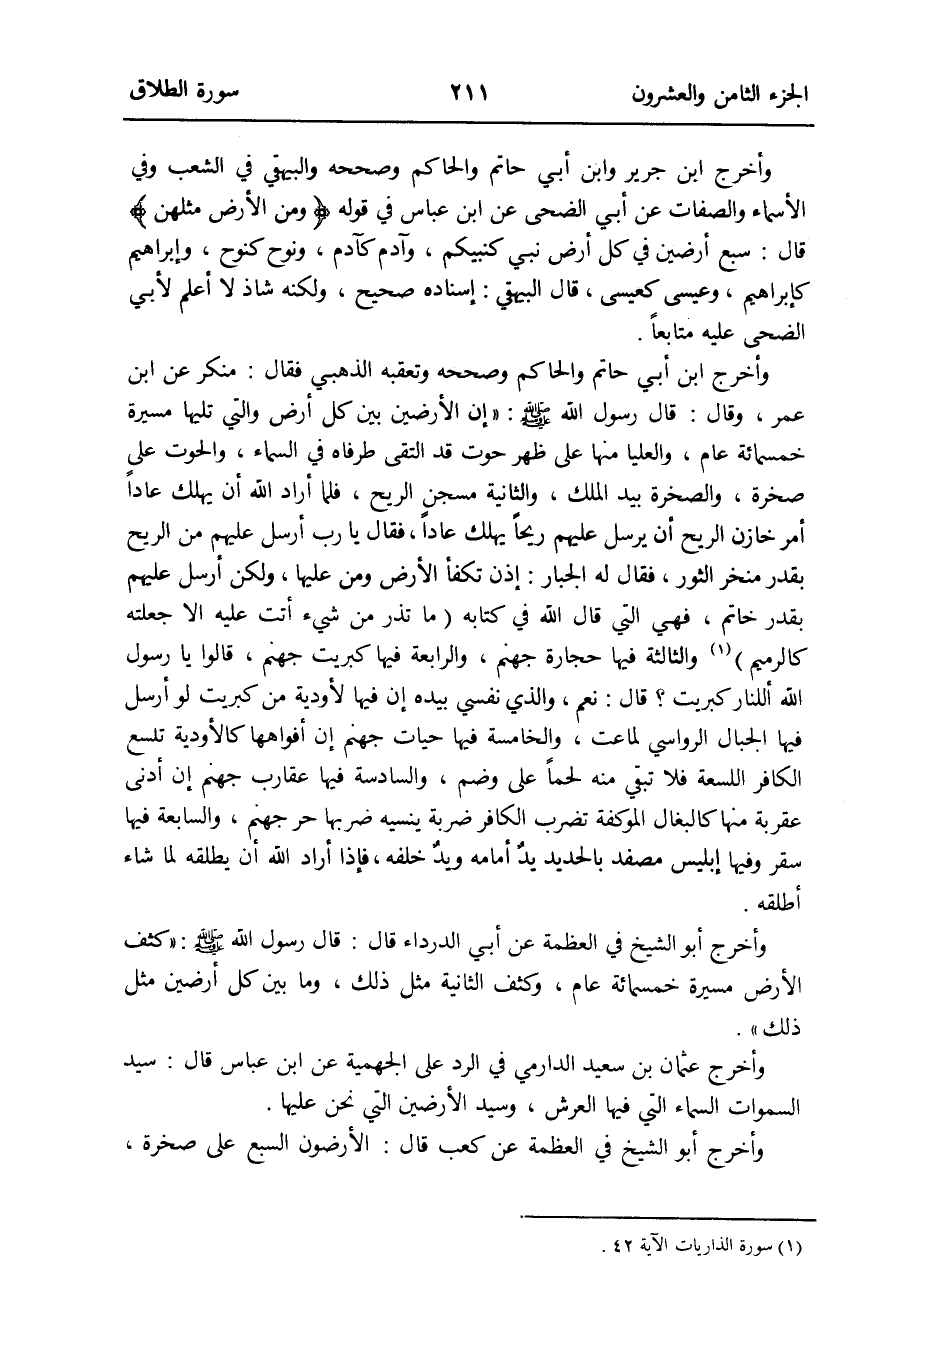 الجزء الثامن والعشرون ٢١١ سورة الطلاق
وأخرج ابن جرير وابن أبي حاتم والحاكم وصححه والبيهقي في الشعب وفي
الأسماء والصفات عن أبي الضحى عن ابن عباس في قوله ﴿ ومن الأرض مثلهن ﴾
قال : سبع أرضين في كل أرض نبي كنبيكم ، وآدم كآدم ، ونوح كنوح ، وإبراهيم
كإبراهيم ، وعيسى كعيسى ، قال البيهقي : إسناده صحيح ، ولكنه شاذ لا أعلم لأبي
الضحى عليه متابعاً .
وأخرج ابن أبي حاتم والحاكم وصححه وتعقبه الذهبي فقال : منكر عن ابن
عمر ، وقال : قال رسول الله ﷺ : «إن الأرضين بين كل أرض والتي تليها مسيرة
خمسمائة عام ، والعليا منها على ظهر حوت قد التقى طرفاه في السماء ، والحوت على
صخرة ، والصخرة بيد الملك ، والثانية مسجن الريح ، فلما أراد الله أن يهلك عاداً
أمر خازن الريح أن يرسل عليهم ريحاً يهلك عاداً ، فقال يا رب أرسل عليهم من الريح
بقدر منخر الثور ، فقال له الجبار : إذن تكفأ الأرض ومن عليها ، ولكن أرسل عليهم
بقدر خاتم ، فهي التي قال الله في كتابه ( ما تذر من شيء أتت عليه الا جعلته
كالرميم )(١) والثالثة فيها حجارة جهنم ، والرابعة فيها كبريت جهنم ، قالوا يا رسول
الله أللنار كبريت ؟ قال : نعم ، والذي نفسي بيده إن فيها لأودية من كبريت لو أرسل
فيها الجبال الرواسي لماعت ، والخامسة فيها حيات جهنم إن أفواهها كالأودية تلسع
الكافر اللسعة فلا تبقي منه لحماً على وضم ، والسادسة فيها عقارب جهنم إن أدنى
عقربة منها كالبغال الموكفة تضرب الكافر ضربة ينسيه ضربها حر جهنم ، والسابعة فيها
سقر وفيها إبليس مصفد بالحديد يدٌ أمامه ويدٌ خلفه ، فإذا أراد الله أن يطلقه لما شاء
أطلقه .
وأخرج أبو الشيخ في العظمة عن أبي الدرداء قال : قال رسول الله ﷺ : «كثف
الأرض مسيرة خمسمائة عام ، وكثف الثانية مثل ذلك ، وما بين كل أرضين مثل
ذلك» .
وأخرج عثمان بن سعيد الدارمي في الرد على الجهمية عن ابن عباس قال : سيد
السموات السماء التي فيها العرش ، وسيد الأرضين التي نحن عليها .
وأخرج أبو الشيخ في العظمة عن كعب قال : الأرضون السبع على صخرة ،
(١) سورة الذاريات الآية ٤٢ .